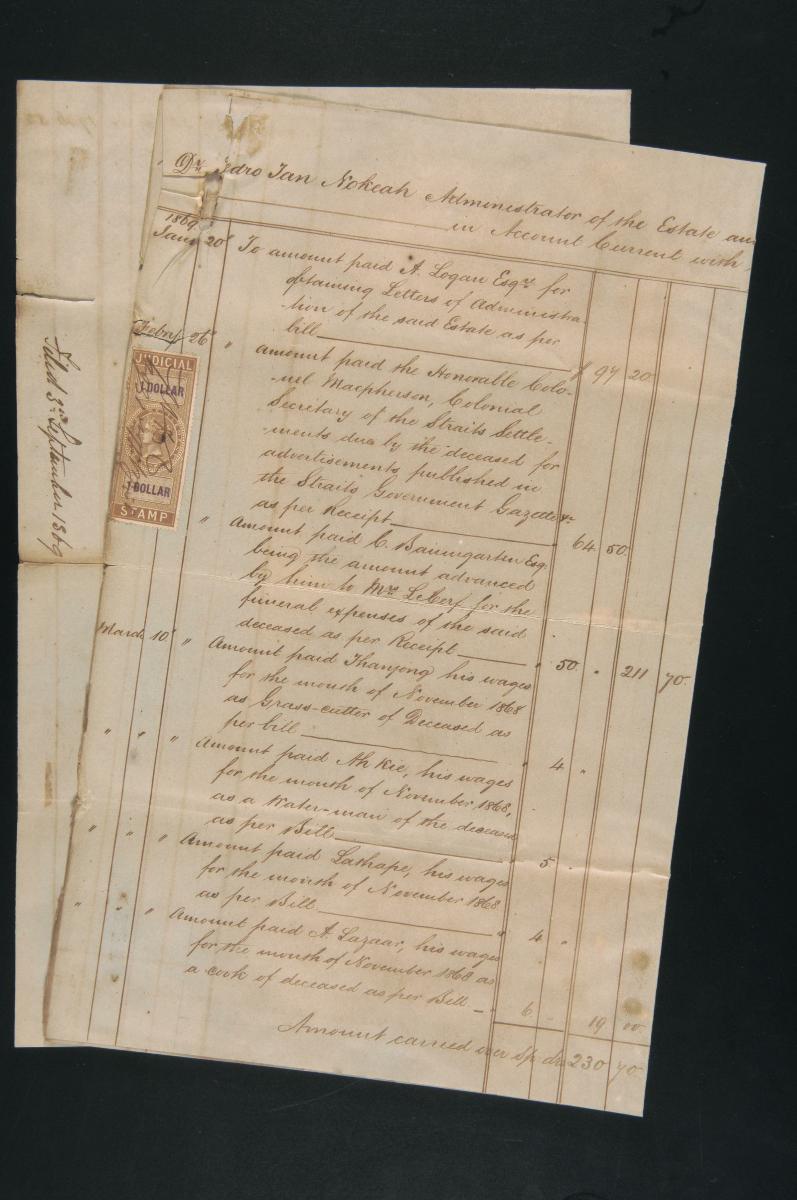 Dr. Pedro Tan Nokeah Administrator of the Estate an
in Account Current with
1869
Jany 20" To amount paid A. Logan Esqre for
obtaining Letters of Administra-
-tion of the said Estate as per
bill $ 97 20
Febry 26" " Amount paid the Honorable Colo-
-nel Macpherson, Colonial
Secretary of the Straits Settle-
-ments due by the deceased for
advertisements published in
the Straits Government Gazette
as per Receipt " 64 50
" Amount paid C. Baumgarten Esq.
being the amount advanced
by him to Mrs. LeCerf for the
funeral expenses of the said
deceased as per Receipt " 50 " 211 70
March 10" " Amount paid Thanjong his wages
for the month of November 1868
as Grass-cutter of Deceased as
per bill " 4 "
" " " Amount paid Ah Kie, his wages
for the month of November 1868,
as a Water-man of the deceased
as per Bill " 5 "
" " " Amount paid Lathape, his wages
for the month of November 1868
as per Bill " 4 "
" " " Amount paid A. Lazaar, his wages
for the month of November 1868 as
a cook of deceased as per Bill " 6 - 19 00
Amount carried over Sp drs 230 70
JUDICIAL
1 DOLLAR
1 DOLLAR
STAMP
Filed 3rd September 1869